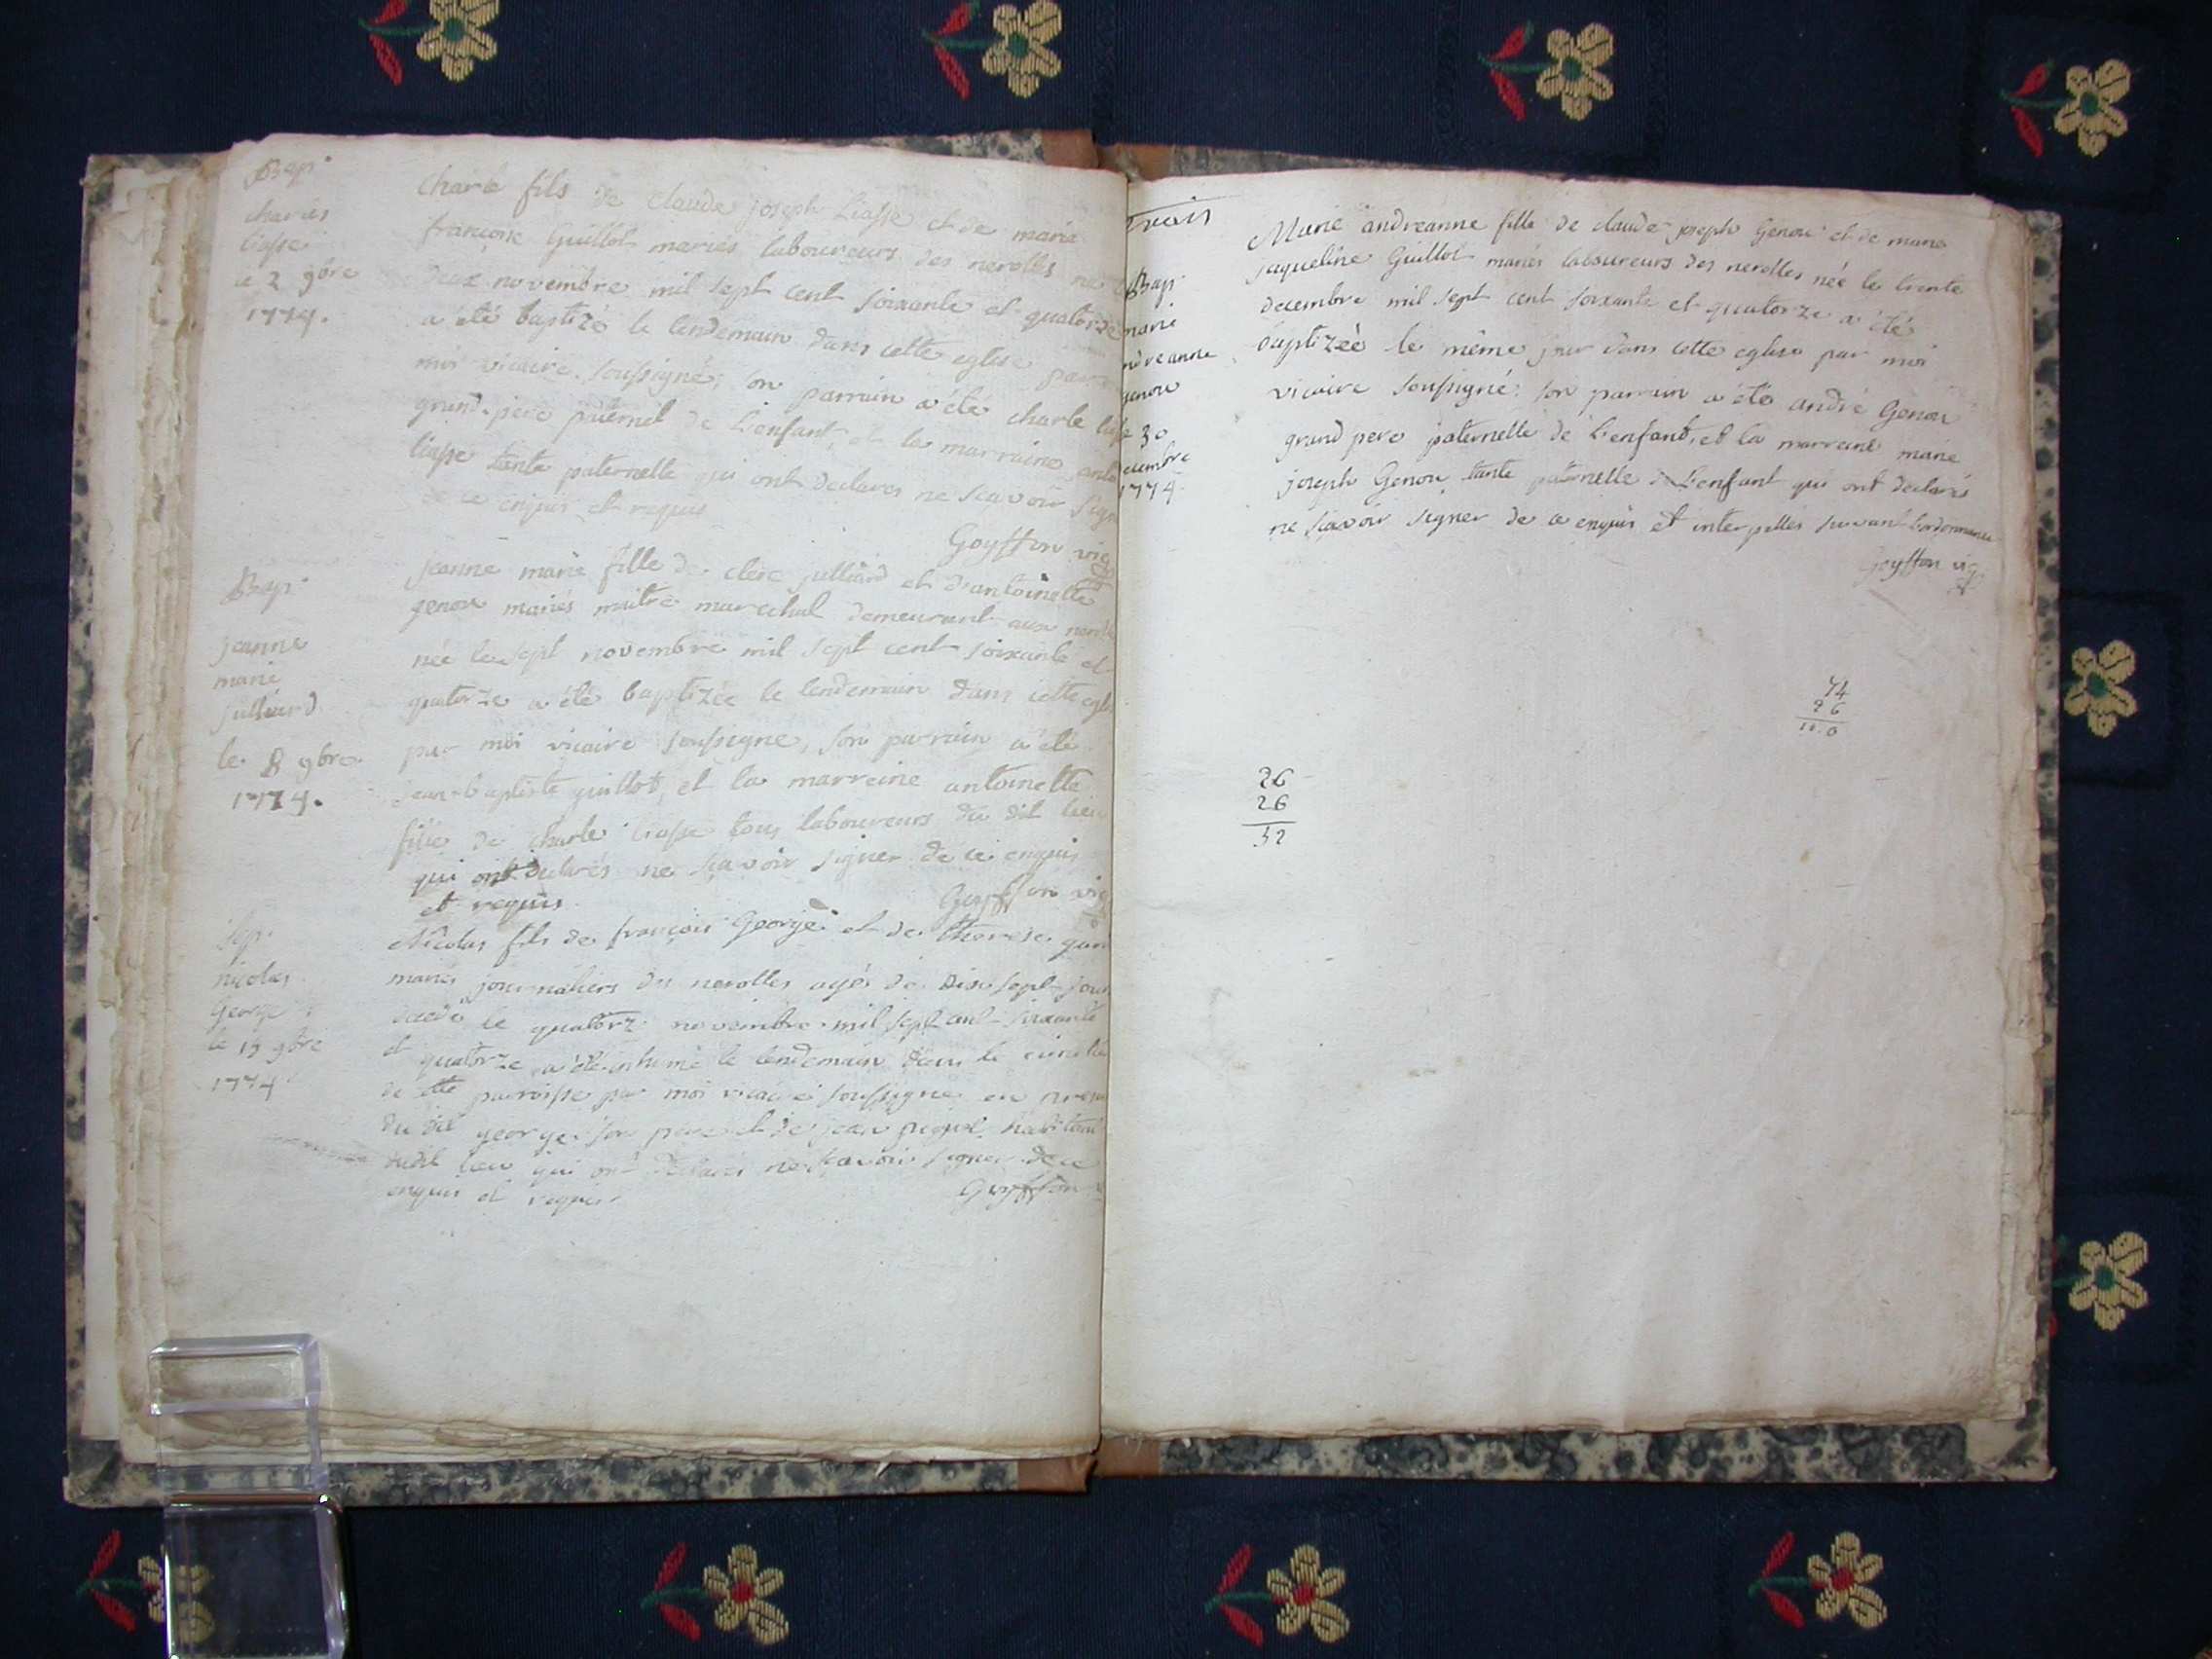 Bap.
charles
liasse
le 2 9bre
1774.
Charle fils de claude joseph Liasse et de marie
françoise Guillot mariés laboureurs des nerolles né
deux novembre mil sept cent soixante et quatorze
a été baptizé le lendemain dans cette eglise par
moi vicaire soussigné; son parrain a été charle liasse
grand-pere paternel de L'enfant, et la marraine
liasse tante paternelle qui ont declarés ne sçavoir sign
de ce enquis et requis
Goyffon vic
Bap.
jeanne
marie
julliard
le 8 9bre
1774.
jeanne marie fille de clere julliard et d'antoinette
genou mariés maitre marechal demeurant aux nerolles
née le sept novembre mil sept cent soixante et
quatorze a été baptizée le lendemain dans cette egli
par moi vicaire soussigné, son parrain a été
jean-baptiste guillot, et la marreine antoinette
fille de charle liasse tous laboureurs du dit lieu
qui ont declarés ne sçavoir signer de ce enquis
et requis.
Goyffon vic
Sep.
nicolas
George
le 15 9bre
1774
Nicolas fils de françois George et de therese
mariés journaliers des nerolles agé de dix sept jours
decedé le quatorze novembre mil sept cent soixante
et quatorze a été inhumé le lendemain dans le cimetie
de cette parroisse par moi vicaire soussigné en presen
du dit george son pere et de jean habitant
dudit lieu qui ont declarés ne sçavoir signer de ce
enquis et requis
Goyffon v
trois
Bap.
marie
ndreanne
genou
e 30
ecembre
1774.
Marie andreanne fille de claude-joseph Genou et de marie
jaqueline Guillot mariés laboureurs des nerolles née le trente
decembre mil sept cent soixante et quatorze a été
baptizée le même jour dans cette eglise par moi
vicaire soussigné; son parrain a été andré Genou
grand pere paternelle de L'enfant, et la marreine marie
joseph Genou tante paternelle de L'enfant qui ont declarés
ne sçavoir signer de ce enquis et interpellés suivant l'ordonnance
Goyffon vic
74
26
110
26
26
52